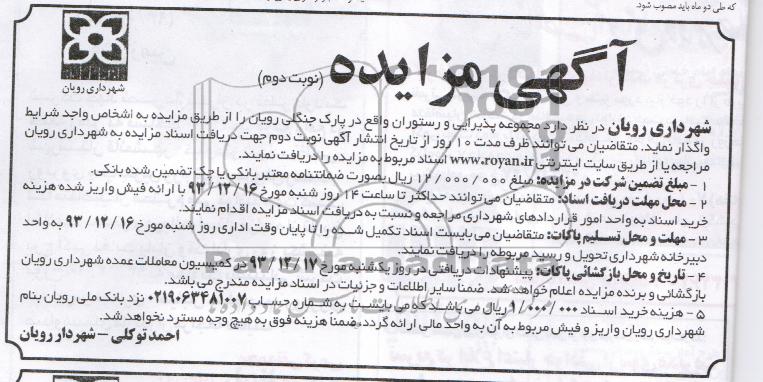 که طی دو ماه باید مصوب شود.
آگهی مزایده (نوبت دوم)
شهرداری رویان
شهرداری رویان در نظر دارد مجموعه پذیرایی و رستوران واقع در پارک جنگلی رویان را از طریق مزایده به اشخاص واجد شرایط
واگذار نماید. متقاضیان می توانند ظرف مدت ۱۰ روز از تاریخ انتشار آگهی نوبت دوم جهت دریافت اسناد مزایده به شهرداری رویان
مراجعه یا از طریق سایت اینترنتی www.royan.ir اسناد مربوط به مزایده را دریافت نمایند.
۱ - مبلغ تضمین شرکت در مزایده: مبلغ ۱۲/۰۰۰/۰۰۰ ریال بصورت ضمانتنامه معتبر بانکی یا چک تضمین شده بانکی.
۲ - محل مهلت دریافت اسناد: متقاضیان می توانند حداکثر تا ساعت ۱۴ روز شنبه مورخ ۹۳/۱۲/۱۶ با ارائه فیش واریز شده هزینه
خرید اسناد به واحد امور قراردادهای شهرداری مراجعه و نسبت به دریافت اسناد مزایده اقدام نمایند.
۳ - مهلت و محل تسلیم پاکات: متقاضیان می بایست اسناد تکمیل شده را تا پایان وقت اداری روز شنبه مورخ ۹۳/۱۲/۱۶ به واحد
دبیرخانه شهرداری تحویل و رسید مربوطه را دریافت نمایند.
۴ - تاریخ و محل بازگشائی پاکات: پیشنهادات دریافتی در روز یکشنبه مورخ ۹۳/۱۲/۱۷ در کمیسیون معاملات عمده شهرداری رویان
بازگشائی و برنده مزایده اعلام خواهد شد. ضمنا سایر اطلاعات و جزئیات در اسناد مزایده مندرج می باشد.
۵ - هزینه خرید اسناد ۱/۰۰۰/۰۰۰ ریال می باشد که می بایست به شماره حساب ۰۲۱۹۰۶۳۴۸۱۰۰۷ نزد بانک ملی رویان بنام
شهرداری رویان واریز و فیش مربوط به آن به واحد مالی ارائه گردد. ضمنا هزینه فوق به هیچ وجه مسترد نخواهد شد.
احمد توکلی - شهردار رویان